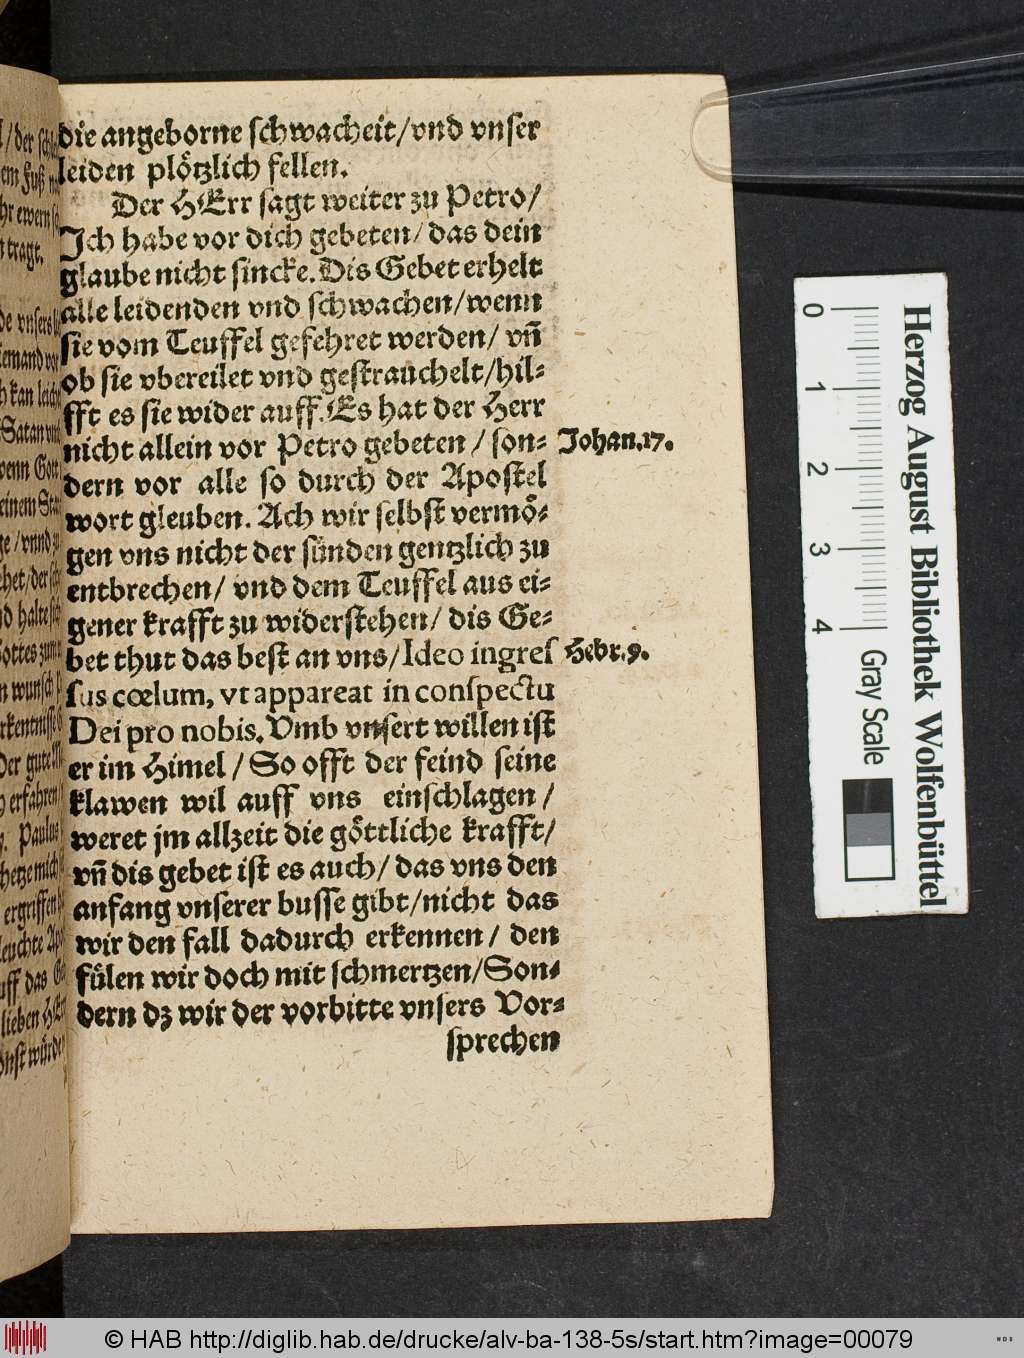 die angeborne schwacheit/vnd vnser
leiden plötzlich fellen.
Der HErr sagt weiter zu Petro/
Ich habe vor dich gebeten/das dein
glaube nicht sincke. Dis Gebet erhelt
alle leidenden vnd schwachen/wenn
sie vom Teuffel gefehret werden/ vñ
ob sie vbereilet vnd gestrauchelt/hil-
fft es sie wider auff. Es hat der Herr
nicht allein vor Petro gebeten / son-
Johan.17.
dern vor alle so durch der Apostel
wort gleuben. Ach wir selbst vermö-
gen vns nicht der sünden gentzlich zu
entbrechen/ vnd dem Teuffel aus ei-
gener krafft zu widerstehen/ dis Ge-
bet thut das best an vns/Ideo ingreſ
Hebr.9.
ſus cœlum, vt appareat in conſpectu
Dei pro nobis. Vmb vnsert willen ist
er im Himel / So offt der feind seine
klawen wil auff vns einschlagen /
weret jm allzeit die göttliche krafft/
vñ dis gebet ist es auch/ das vns den
anfang vnserer busse gibt/nicht das
wir den fall dadurch erkennen / den
fülen wir doch mit schmertzen/Son-
dern dz wir der vorbitte vnsers Vor-
sprechen
Herzog August Bibliothek Wolfenbüttel
0 1 2 3 4
Gray Scale
© HAB http://diglib.hab.de/drucke/alv-ba-138-5s/start.htm?image=00079